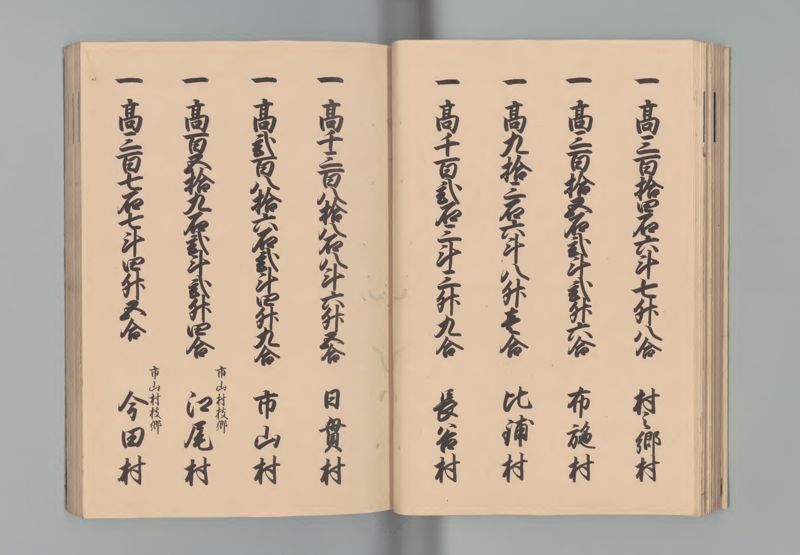 一 高三百拾四石六斗七升八合 村之郷村
一 高三百拾五石弐斗弐升六合 布施村
一 高九拾三石六斗八升壱合 比鋪村
一 高千百弐石三斗三升九合 長谷村
一 高千三百八拾八石八斗六升五合 日貫村
一 高弐百八拾六石弐斗四升九合 市山村
市山村枝郷
一 高百五拾九石弐斗弐升四合 江尾村
市山村枝郷
一 高三百七石七斗四升五合 今田村